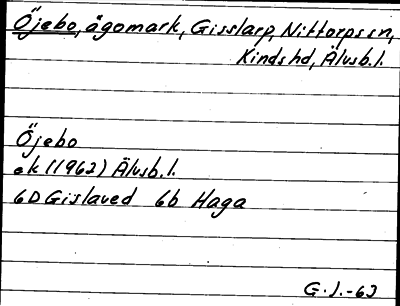 Öjebo, ägomark, Gisslarp, Nittorps sn,
Kinds hd, Älvsb.l.
Öjebo
ek (1962) Älvsb.l.
6D Gislaved 6b Haga
G.J.-63